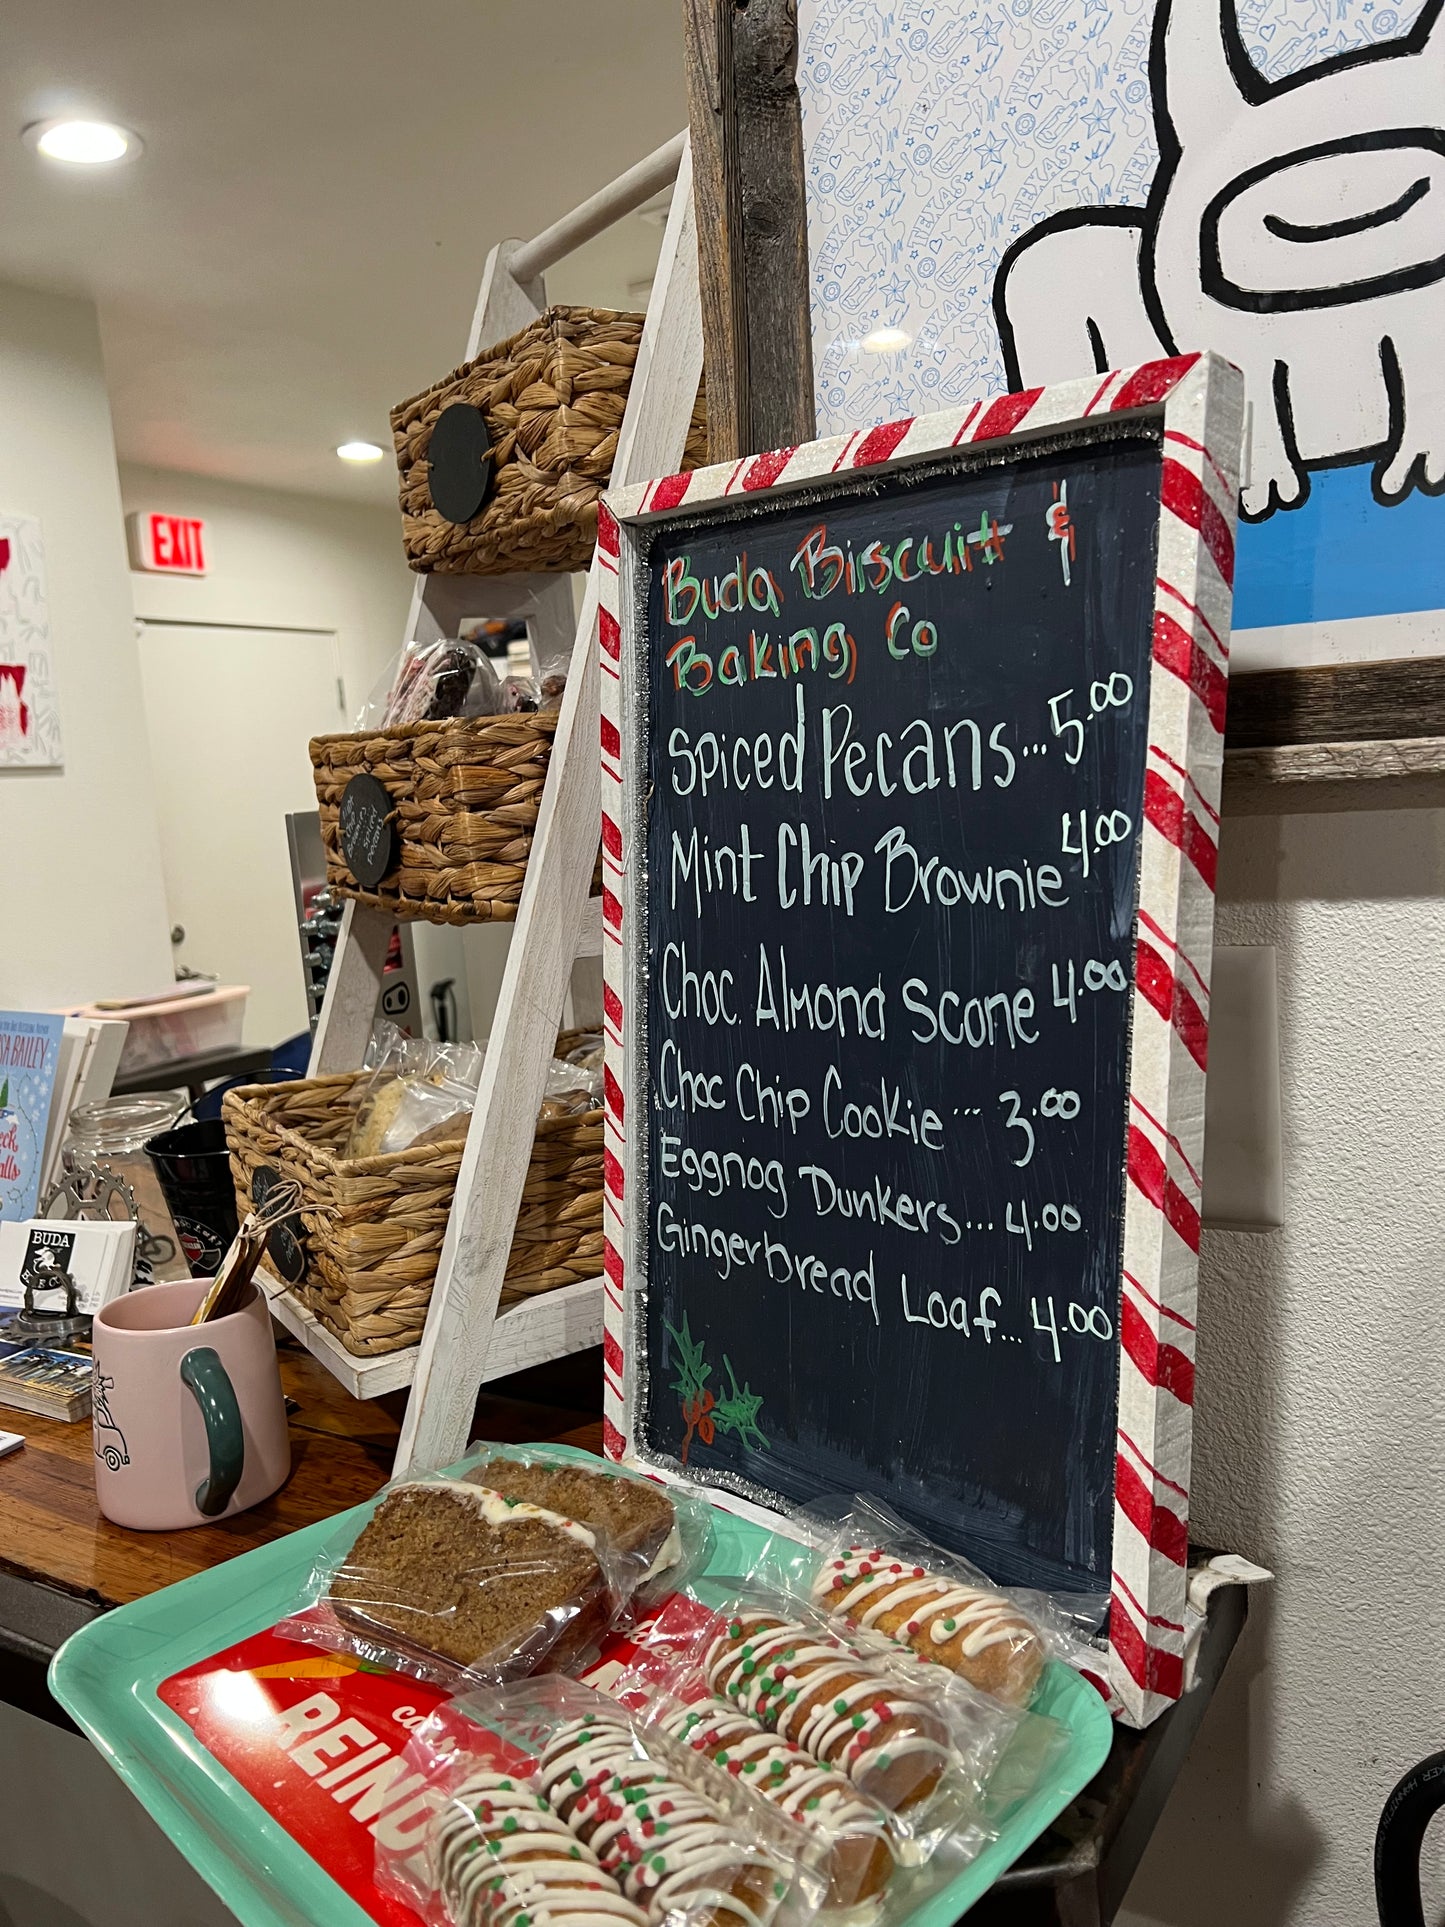 EXIT
TEXAS
Buda Birscuitt &
Baking Co
Spiced Pecans...5.00
Mint Chip Brownie 4.00
Choc. Almond Scone 4.00
Choc Chip Cookie... 3.00
Eggnog Dunkers... 4.00
Gingerbread Loaf... 4.00
spiced
pecans
BAILEY
BUDA
REIND